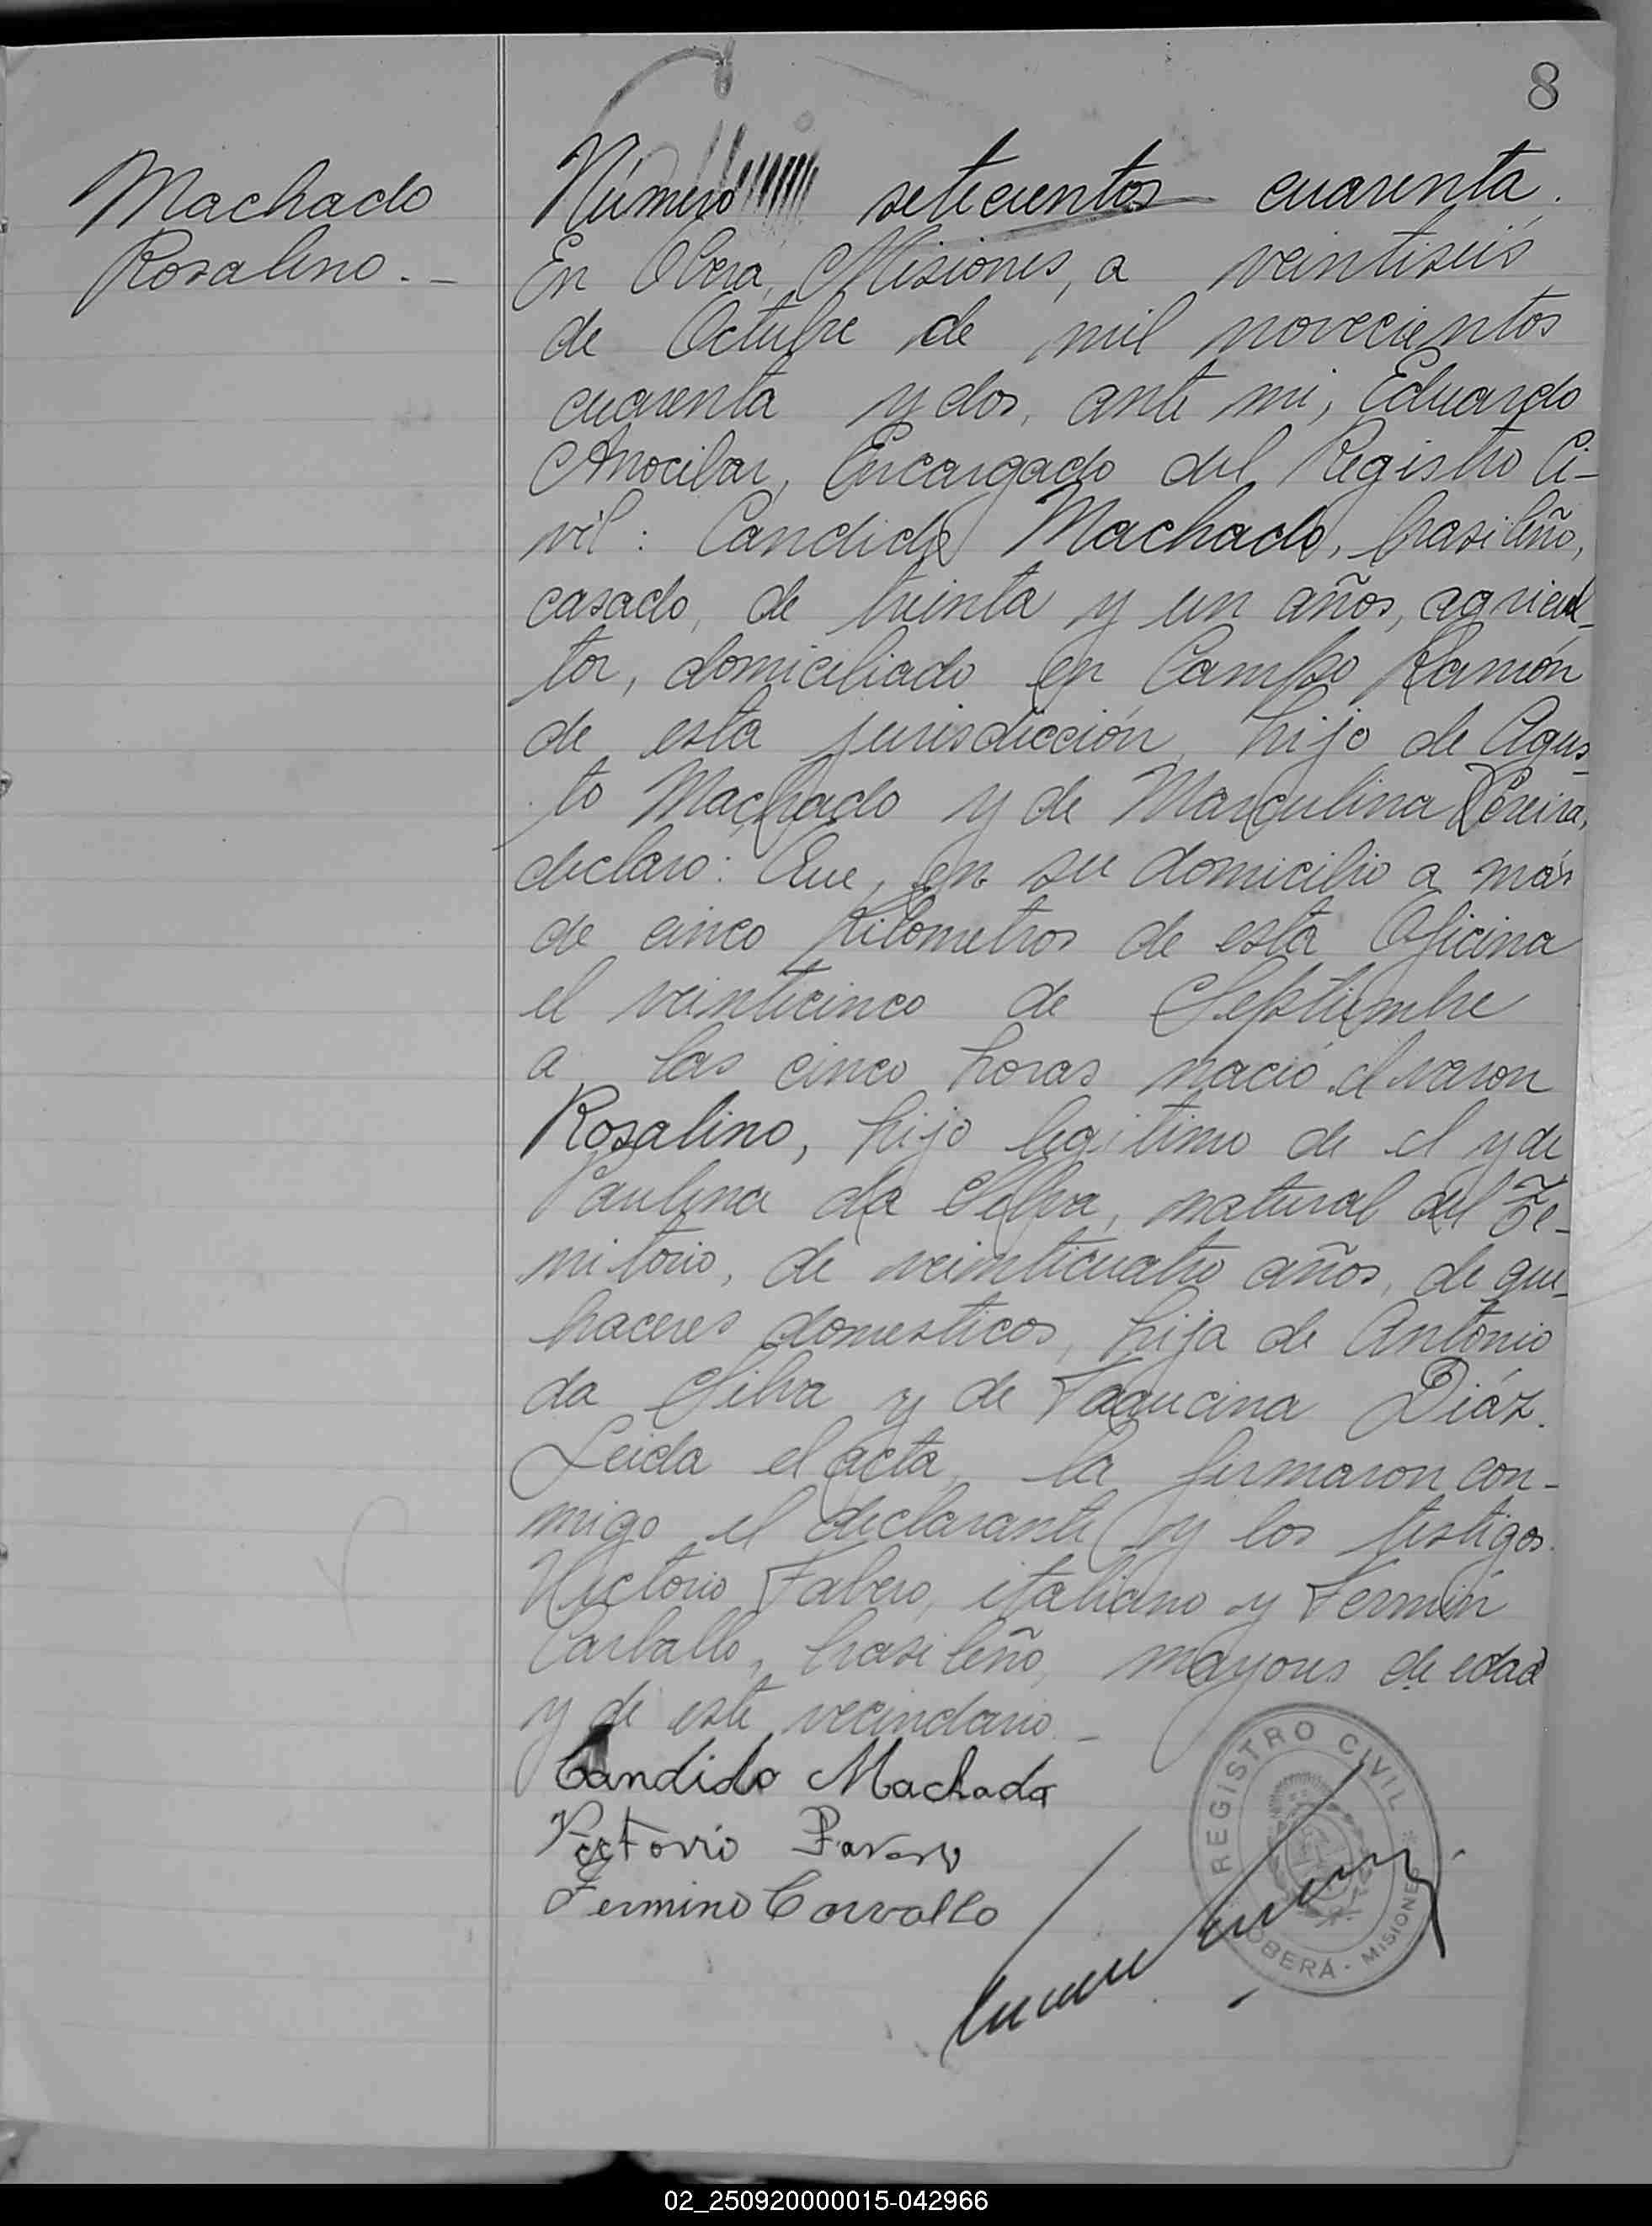 8
Machado
Rosalino.-
Número setecientos cuarenta.
En Obera, Misiones, a veintiseis
de Octubre de mil novecientos
cuarenta y dos, ante mi, Eduardo
Anocibar, Encargado del Registro Ci-
vil: Candido Machado, brasileño,
casado, de treinta y un años, agricul-
tor, domiciliado en Campo Ramón
de esta jurisdicción, hijo de Agus-
to Machado y de Marculina Pereira,
declaro: Que, en su domicilio a más
de cinco kilometros de esta Oficina
el veinticinco de Septiembre
a las cinco horas nació el varon
Rosalino, hijo legitimo de el y de
Paulina da Silva, natural del Te-
rritorio, de veinticuatro años, de que-
haceres domesticos, hija de Antonio
da Silva y de Díaz.
Leida el acta, la firmaron con-
migo el declarante y los testigos.
Victorio Fabero, italiano y Fermín
Carballo, brasileño, mayores de edad
y de este vecindario.-
Candido Machado
Victorio
Fermino Corvallo
REGISTRO CIVIL
OBERÁ - MISIONES
02_250920000015-042966